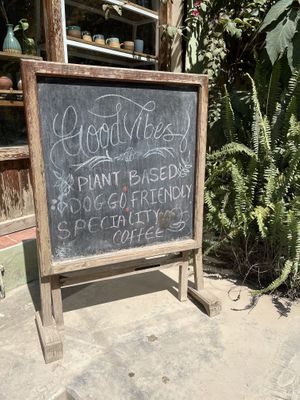 Good Vibes
PLANT BASED
DOGGO FRIENDLY
SPECIALITY
COFFEE